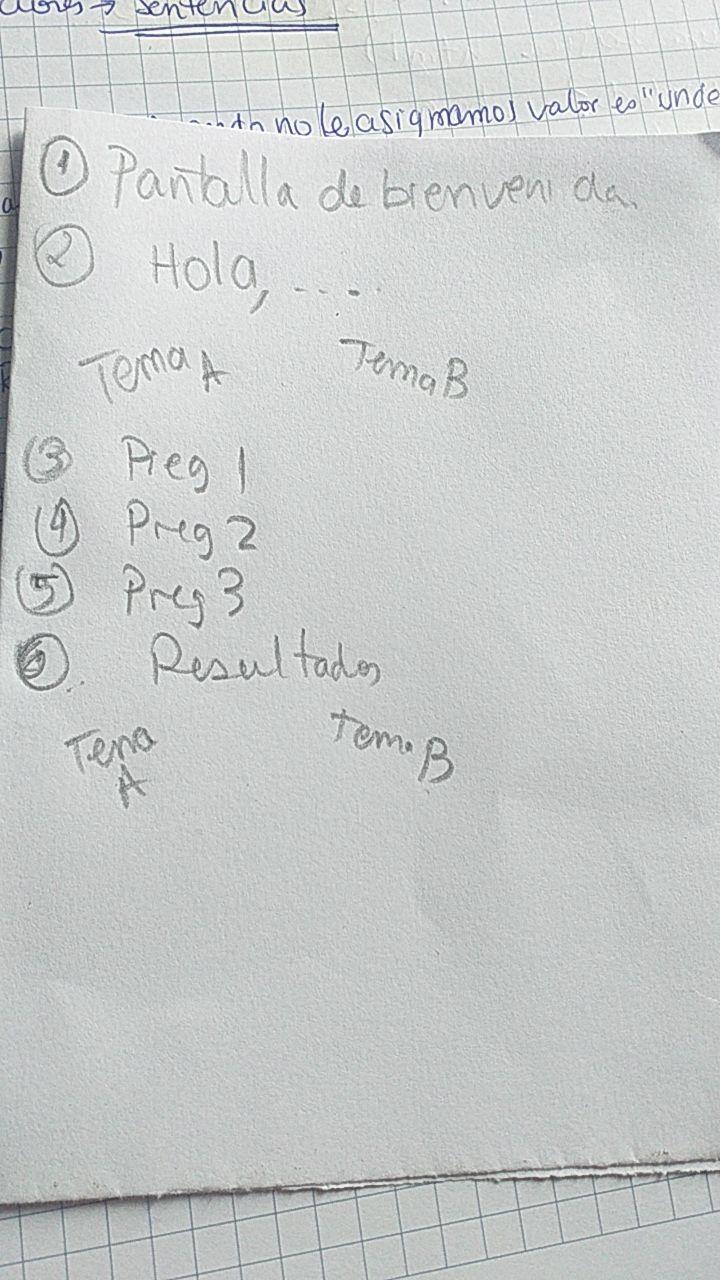 → sentencias
no le asignamos valor es "unde
① Pantalla de bienvenida.
② Hola, ....
Tema A Tema B
③ Preg 1
④ Preg 2
⑤ Preg 3
⑥. Resultados
Tema A Tema B